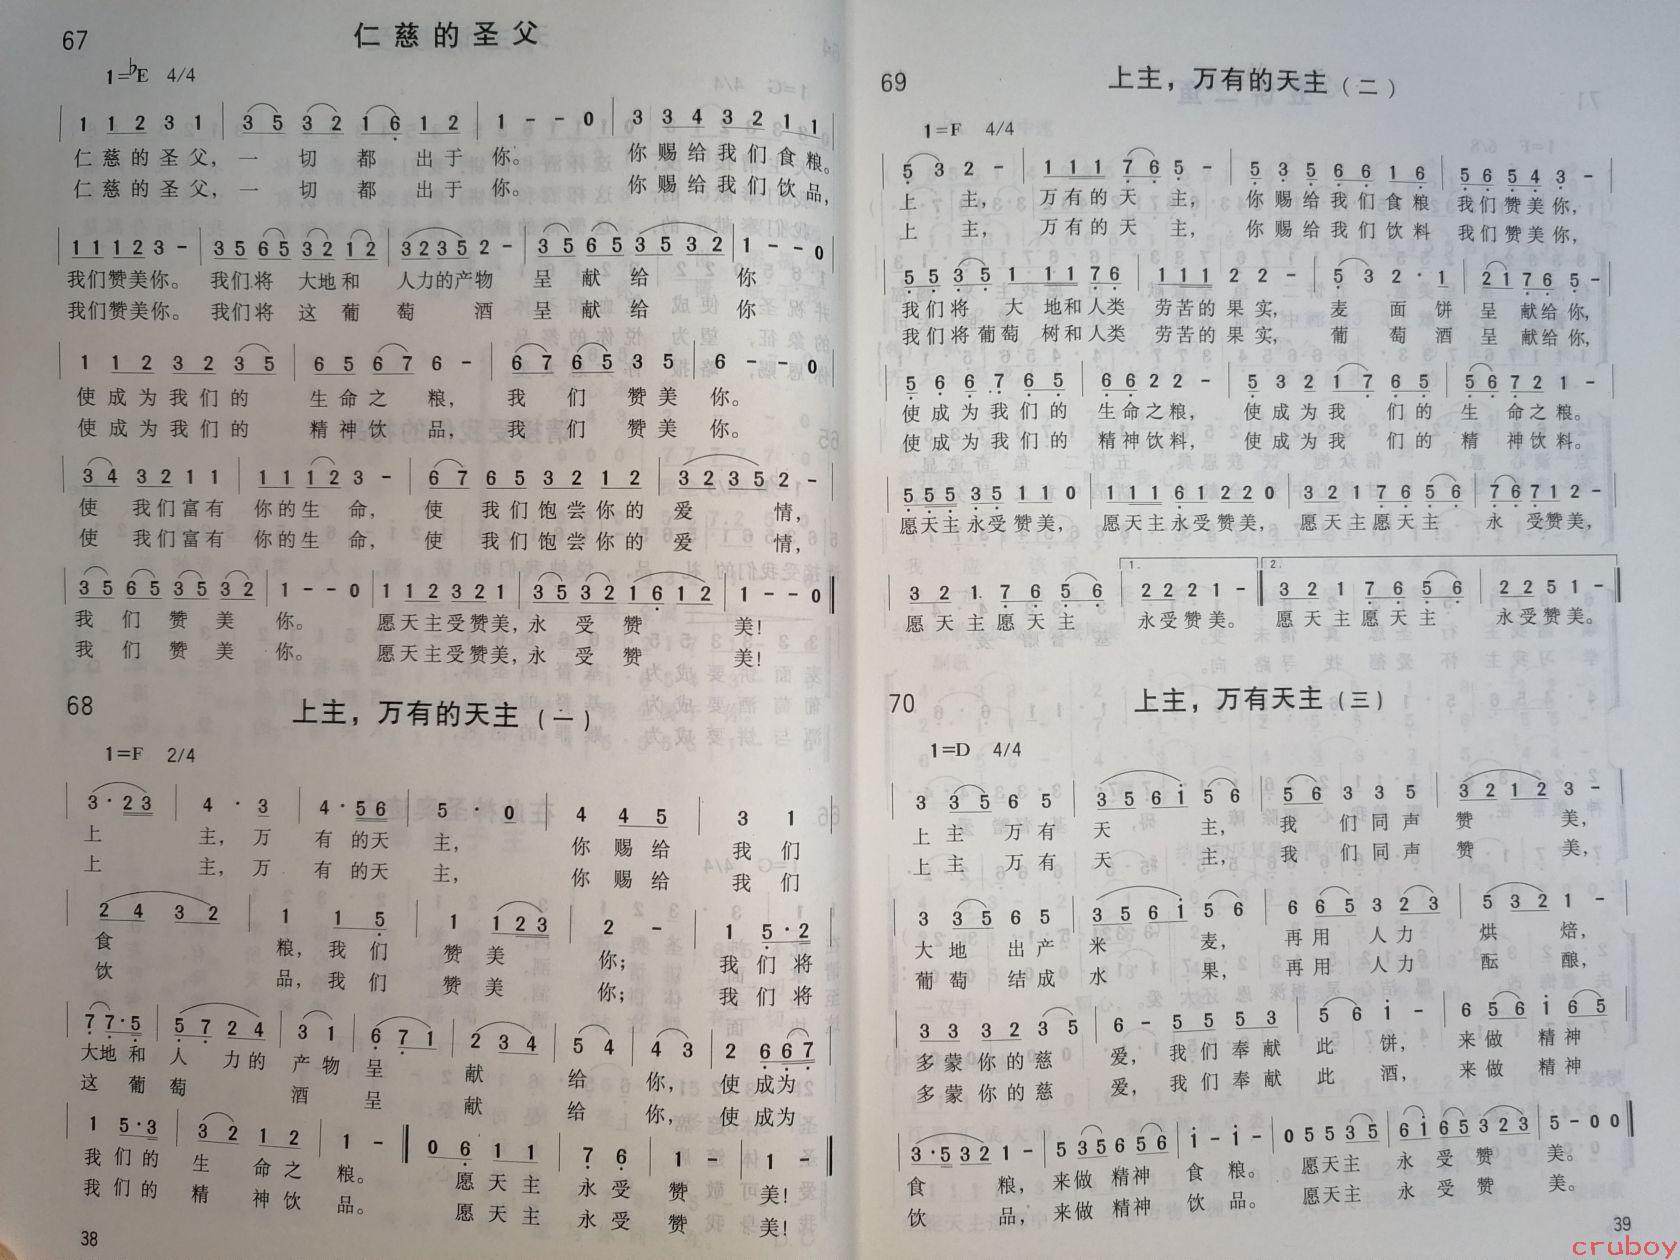 67
仁慈的圣父
1=♭E 4/4
1 1 2 3 1 | 3 5 3 2 1 6 1 2 | 1 - - 0 | 3 3 4 3 2 1 1
仁慈的圣父，一 切 都 出于 你。 你赐给我们食粮。
仁慈的圣父，一 切 都 出于 你。 你赐给我们饮品，
1 1 1 2 3 - | 3 5 6 5 3 2 1 2 | 3 2 3 5 2 - | 3 5 6 5 3 5 3 2 | 1 - - 0
我们赞美你。 我们将 大地和 人力的产物 呈 献 给 你
我们赞美你。 我们将 这葡萄 酒 呈 献 给 你
1 1 2 3 2 3 5 | 6 5 6 7 6 - | 6 7 6 5 3 5 | 6 - - 0
使成为我们的 生命之 粮， 我 们 赞美 你。
使成为我们的 精神饮 品， 我 们 赞美 你。
3 4 3 2 1 1 | 1 1 1 2 3 - | 6 7 6 5 3 2 1 2 | 3 2 3 5 2 -
使 我们富有 你的生 命， 使 我们饱尝你的 爱 情，
使 我们富有 你的生 命， 使 我们饱尝你的 爱 情，
3 5 6 5 3 5 3 2 | 1 - - 0 | 1 1 2 3 2 1 | 3 5 3 2 1 6 1 2 | 1 - - 0
我 们 赞 美 你。 愿天主受赞美，永 受 赞 美！
我 们 赞 美 你。 愿天主受赞美，永 受 赞 美！
68
上主，万有的天主（一）
1=F 2/4
3 · 2 3 | 4 · 3 | 4 · 5 6 | 5 · 0 | 4 4 5 | 3 1
上 主，万 有 的天 主， 你 赐给 我们
上 主，万 有 的天 主， 你 赐给 我们
2 4 3 2 | 1 1 5 | 1 1 2 3 | 2 - | 1 5 · 2
食 粮，我们 赞美 你； 我们将
饮 品，我们 赞美 你； 我们将
7 7 · 5 | 5 7 2 4 | 3 1 | 6 7 1 | 2 3 4 | 5 4 | 4 3 | 2 6 6 7
大地和 人 力的 产物 呈 献 给 你， 使 成为
这 葡 萄 酒 呈 献 给 你， 使 成为
1 5 · 3 | 3 2 1 2 | 1 - ‖ 0 6 1 1 | 7 6 | 1 - | 1 -
我们的 生 命之 粮。 愿天主 永受 赞 美！
我们的 精 神饮 品。 愿天主 永受 赞 美！
38
69
上主，万有的天主（二）
1=F 4/4
5 3 2 - | 1 1 1 7 6 5 - | 5 3 5 6 6 1 6 | 5 6 5 4 3 -
上 主， 万有的天 主， 你赐给我们食粮 我们赞美你，
上 主， 万有的天 主， 你赐给我们饮料 我们赞美你，
5 5 3 5 1 1 1 7 6 | 1 1 1 2 2 - | 5 3 2 · 1 | 2 1 7 6 5 -
我们将 大 地和人类 劳苦的果实， 麦 面 饼 呈 献给你，
我们将葡萄 树和人类 劳苦的果实， 葡 萄 酒 呈 献给你，
5 6 6 7 6 5 | 6 6 2 2 - | 5 3 2 1 7 6 5 | 5 6 7 2 1 -
使成为我们的 生命之粮， 使成为我 们的 生 命之粮。
使成为我们的 精神饮料， 使成为我 们的 精 神饮料。
5 5 5 3 5 1 1 0 | 1 1 1 6 1 2 2 0 | 3 2 1 7 6 5 6 | 7 6 7 1 2 -
愿天主永受赞美， 愿天主永受赞美， 愿天主愿天主 永 受赞美，
1. 2.
3 2 1 7 6 5 6 | 2 2 2 1 - ‖ 3 2 1 7 6 5 6 | 2 2 5 1 - ‖
愿天主愿天主 永受赞美。 愿天主愿天主 永受赞美。
70
上主，万有天主（三）
1=D 4/4
3 3 5 6 5 | 3 5 6 i 5 6 | 5 6 3 3 5 | 3 2 1 2 3 -
上主 万有 天 主， 我 们同声 赞 美，
上主 万有 天 主， 我 们同声 赞 美，
3 3 5 6 5 | 3 5 6 i 5 6 | 6 6 5 3 2 3 | 5 3 2 1 -
大地 出产 米 麦， 再用 人力 烘 焙，
葡萄 结成 水 果， 再用 人力 酝 酿，
3 3 3 2 3 5 | 6 - 5 5 5 3 | 5 6 i - | 6 5 6 i 6 5
多蒙你的慈 爱， 我们奉献 此 饼， 来做 精神
多蒙你的慈 爱， 我们奉献 此 酒， 来做 精神
3 · 5 3 2 1 - | 5 3 5 6 5 6 | i - i - | 0 5 5 3 5 | 6 i 6 5 3 2 3 | 5 - 0 0
食 粮， 来做 精神 食 粮。 愿天主 永 受 赞 美。
饮 品， 来做 精神 饮 品。 愿天主 永 受 赞 美。
39
cruboy